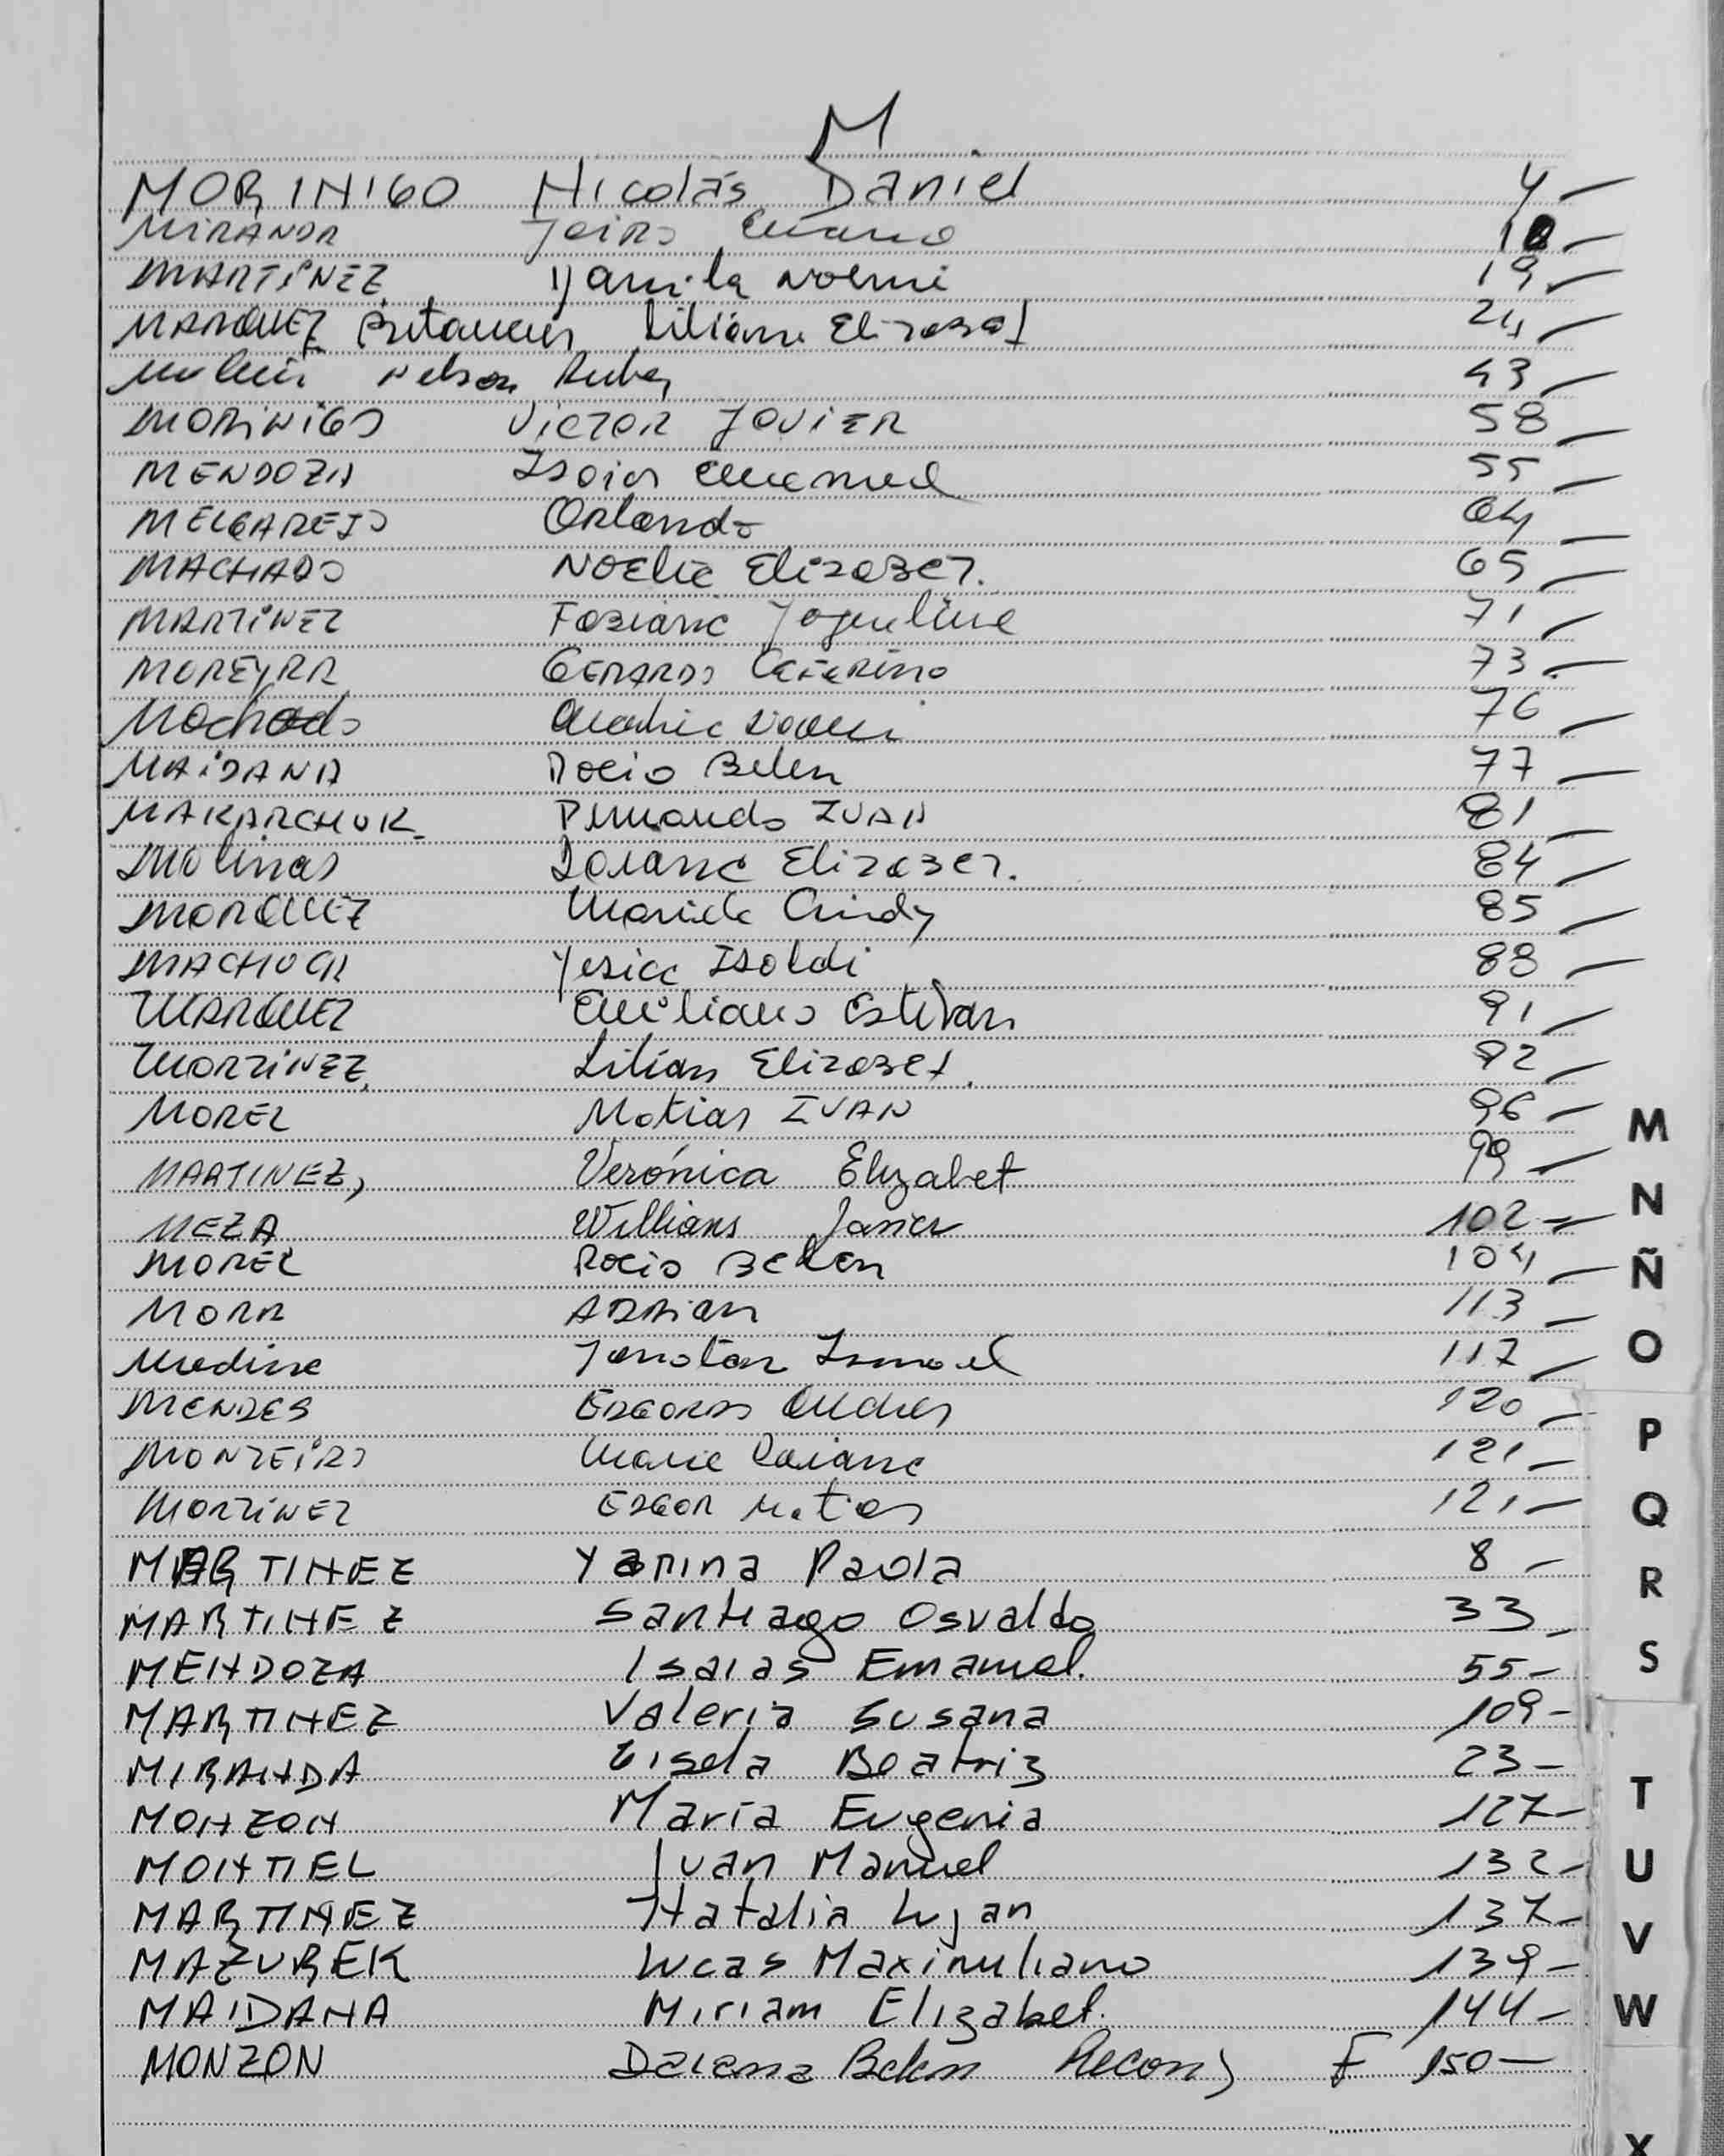 M
MORINIGO Nicolás Daniel 4
MIRANDA Jairo
MARTINEZ Yamila Noemi 19
MARQUEZ Liliana Elizabet 24
Nelson Ruben 43
MORINIGO VICTOR JAVIER 58
MENDOZA Isaias Emanuel 55
MELGAREJO Orlando 64
MACHADO NOELIA Elizabet. 65
MARTINEZ Fabiana Joqueline 71
MOREYRA GERARDO Ceferino 73
Machado Noemi 76
MAIDANA Rocio Belen 77
MAKARCHUK Fernando IVAN 81
Molinas Elizabet. 84
MARQUEZ Mariela Cindy 85
MACHUCA Yesica Isoldi 88
MARQUEZ Emiliano Estevan 91
MARTINEZ Lilian Elizabet. 92
MOREL Matias IVAN 96
MARTINEZ, Verónica Elizabet 99
MEZA Willians Javier 102
MOREL Rocio Belen 104
MORA ADRian 113
Medina Jonatan Ismael 117
MENDES EDGARDO Andres 120
MONTEIRO Maria 121
MARTINEZ EDGAR Matias 121
MARTINEZ Yanina Paola 8
MARTINEZ Santiago Osvaldo 33
MENDOZA Isaias Emanuel. 55
MARTINEZ Valeria Susana 109
MIRANDA Gisela Beatriz 23
MONZON María Eugenia 127
MONTIEL Ivan Manuel 132
MARTINEZ Natalia Lujan 137
MAZUREK Lucas Maximiliano 139
MAIDANA Miriam Elizabet. 144
MONZON Belen F 150
M
N
Ñ
O
P
Q
R
S
T
U
V
W
X